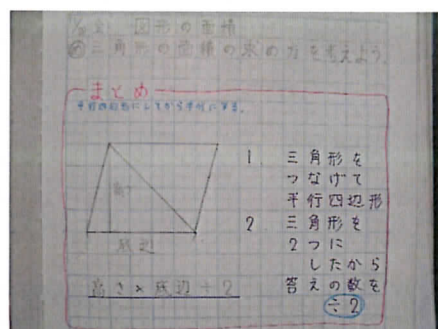 図形の面積
三角形の面積の求め方を考えよう。
まとめ
平行四辺形にしてから半分にする。
高さ
底辺
高さ×底辺÷2
1 三角形を
つなげて
平行四辺形
2 三角形を
2つに
したから
答えの数を
÷2